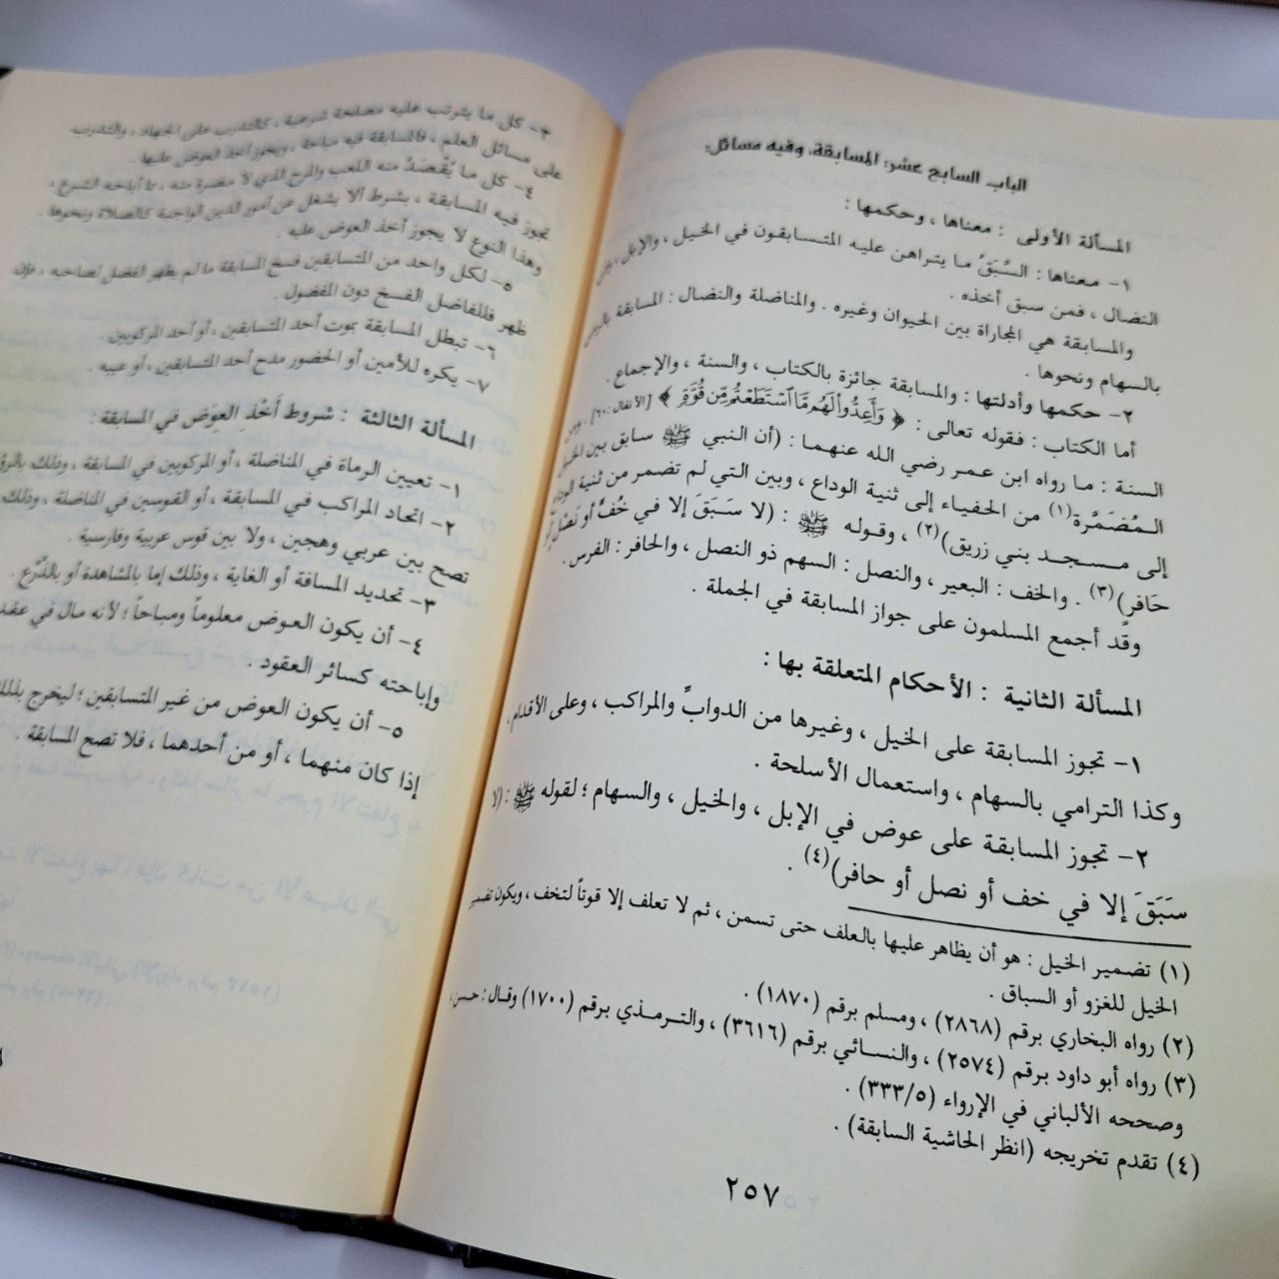 الباب السابع عشر: المسابقة، وفيه مسائل:
المسألة الأولى : معناها ، وحكمها :
١- معناها : السَّبَقُ ما يتراهن عليه المتسابقون في الخيل ، والإبل ،
النضال ، فمن سبق أخذه .
والمسابقة هي المجاراة بين الحيوان وغيره . والمناضلة والنضال : المسابقة
بالسهام ونحوها .
٢- حكمها وأدلتها : والمسابقة جائزة بالكتاب ، والسنة ، والإجماع .
أما الكتاب : فقوله تعالى : ﴿ وَأَعِدُّواْ لَهُم مَّا ٱسْتَطَعْتُم مِّن قُوَّةٍ ﴾ [الأنفال: ٦٠] .
السنة : ما رواه ابن عمر رضي الله عنهما : (أن النبي ﷺ سابق بين الخيل
المُضَمَّرة(١) من الحفياء إلى ثنية الوداع ، وبين التي لم تضمر من ثنية الوداع
إلى مسجد بني زريق)(٢) ، وقوله ﷺ : (لا سَبَقَ إلا في خُفٍّ أو نَصْلٍ أو
حَافرٍ)(٣) . والخف : البعير ، والنصل : السهم ذو النصل ، والحافر : الفرس .
وقد أجمع المسلمون على جواز المسابقة في الجملة .
المسألة الثانية : الأحكام المتعلقة بها :
١- تجوز المسابقة على الخيل ، وغيرها من الدوابِّ والمراكب ، وعلى الأقدام ،
وكذا الترامي بالسهام ، واستعمال الأسلحة .
٢- تجوز المسابقة على عوض في الإبل ، والخيل ، والسهام ؛ لقوله ﷺ : (لا
سَبَقَ إلا في خف أو نصل أو حافر)(٤) .
(١) تضمير الخيل : هو أن يظاهر عليها بالعلف حتى تسمن ، ثم لا تعلف إلا قوتاً لتخف ، ويكون تضمير
الخيل للغزو أو السباق .
(٢) رواه البخاري برقم (٢٨٦٨) ، ومسلم برقم (١٨٧٠) .
(٣) رواه أبو داود برقم (٢٥٧٤) ، والنسائي برقم (٣٦١٦) ، والترمذي برقم (١٧٠٠) وقال : حسن ،
وصححه الألباني في الإرواء (٣٣٣/٥) .
(٤) تقدم تخريجه (انظر الحاشية السابقة) .
٢٥٧
٣- كل ما يترتب عليه مصلحة شرعية ، كالتدرب على الجهاد ، والتدرب
على مسائل العلم ، فالمسابقة فيه مباحة ، ويجوز أخذ العوض عليها .
٤- كل ما يُقْصَدُ منه اللعب والمرح الذي لا مضرة منه ، مما أباحه الشرع ،
تجوز فيه المسابقة ، بشرط ألا يشغل عن أمور الدين الواجبة كالصلاة ونحوها .
وهذا النوع لا يجوز أخذ العوض عليه .
٥- لكل واحد من المتسابقين فسخ المسابقة ما لم يظهر الفضل لصاحبه ، فإن
ظهر فللفاضل الفسخ دون المفضول .
٦- تبطل المسابقة بموت أحد المتسابقين ، أو أحد المركوبين .
٧- يكره للأمين أو الحضور مدح أحد المتسابقين ، أو عيبه .
المسألة الثالثة : شروط أَخْذِ العِوَض في المسابقة :
١- تعيين الرماة في المناضلة ، أو المركوبين في المسابقة ، وذلك
٢- اتحاد المراكب في المسابقة ، أو القوسين في المناضلة ، وذلك
تصح بين عربي وهجين ، ولا بين قوس عربية وفارسية .
٣- تحديد المسافة أو الغاية ، وذلك إما بالمشاهدة أو بالذَّرْع .
٤- أن يكون العوض معلوماً ومباحاً ؛ لأنه مال في عقد
وإباحته كسائر العقود .
٥- أن يكون العوض من غير المتسابقين ؛ ليخرج
إذا كان منهما ، أو من أحدهما ، فلا تصح المسابقة .